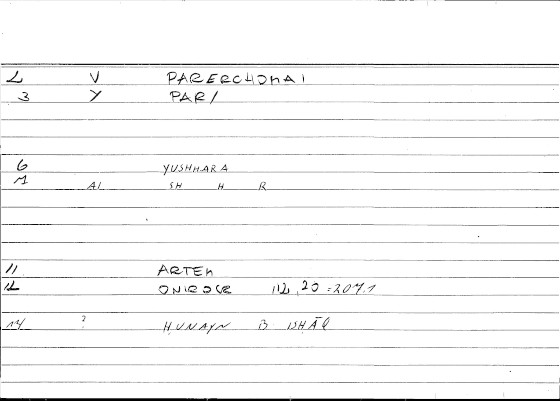 2 V PARERCHOMAI
3 Y PAR/
6 YUSHHARA
7 AL SH H R
11 ARTEM
12 ONIROCR 112,20 = 207.1
14 ? HUNAYN B ISHĀQ